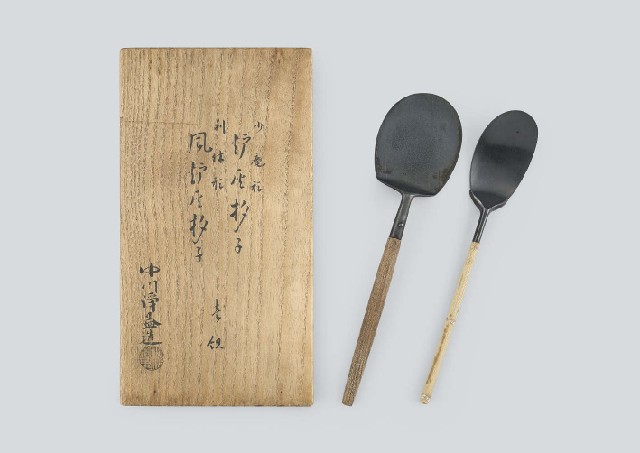 少庵形
炉灰杓子
利休形
風炉灰杓子
中川淨益造